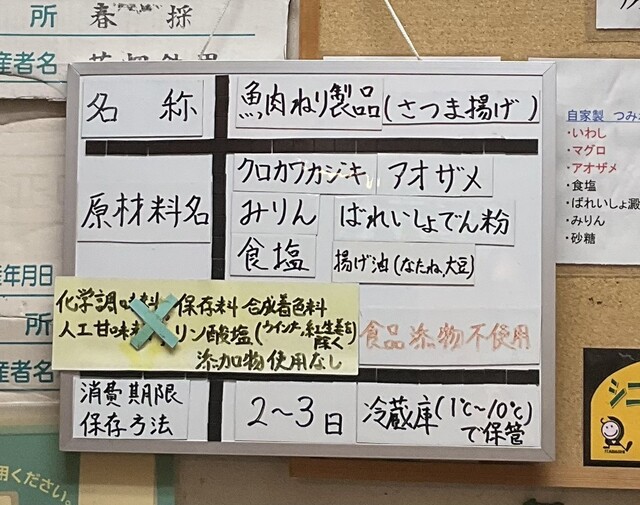 所 春採
産者名
名称
魚肉ねり製品(さつま揚げ)
原材料名
クロカワカジキ アオザメ
みりん ばれいしょでん粉
食塩 揚げ油(なたね、大豆)
化学調味料 保存料 合成着色料
人工甘味料 リン酸塩(ウインナ、紅生姜を除く)
添加物使用なし
食品添加物不使用
消費期限
保存方法
2~3日
冷蔵庫(1℃~10℃)
で保管
自家製 つみ
・いわし
・マグロ
・アオザメ
・食塩
・ばれいしょ澱
・みりん
・砂糖
産年月日
所
産者名
用ください。
シニ